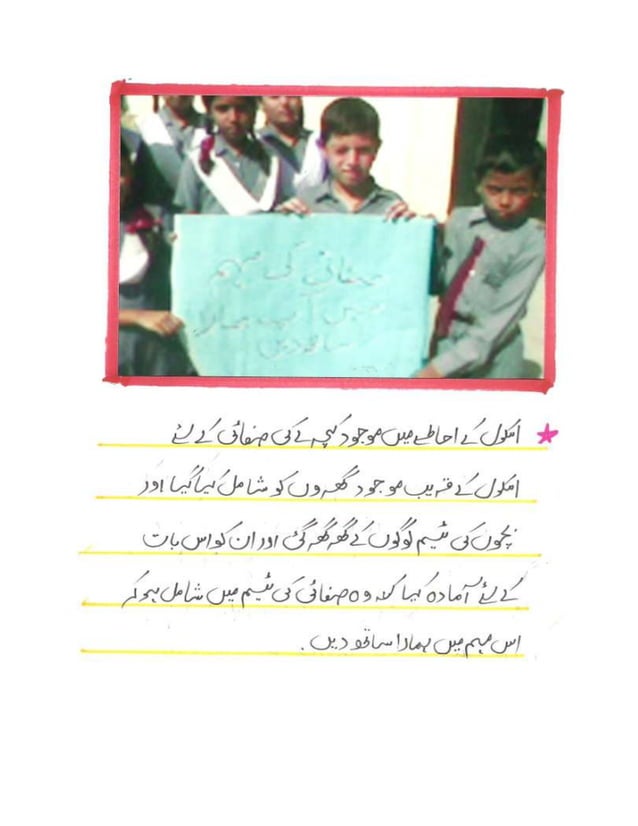 صفائی کی مہم
میں آپ ہمارا
ساتھ دیں
اسکول کے احاطے میں موجود کچرے کی صفائی کے لئے
اسکول کے قریب موجود گھروں کو شامل کیا گیا اور
بچوں کی ٹیم لوگوں کے گھر گھر گئی اور ان کو اس بات
کے لئے آمادہ کیا کہ وہ صفائی کی ٹیم میں شامل ہو کر
اس مہم میں ہمارا ساتھ دیں۔